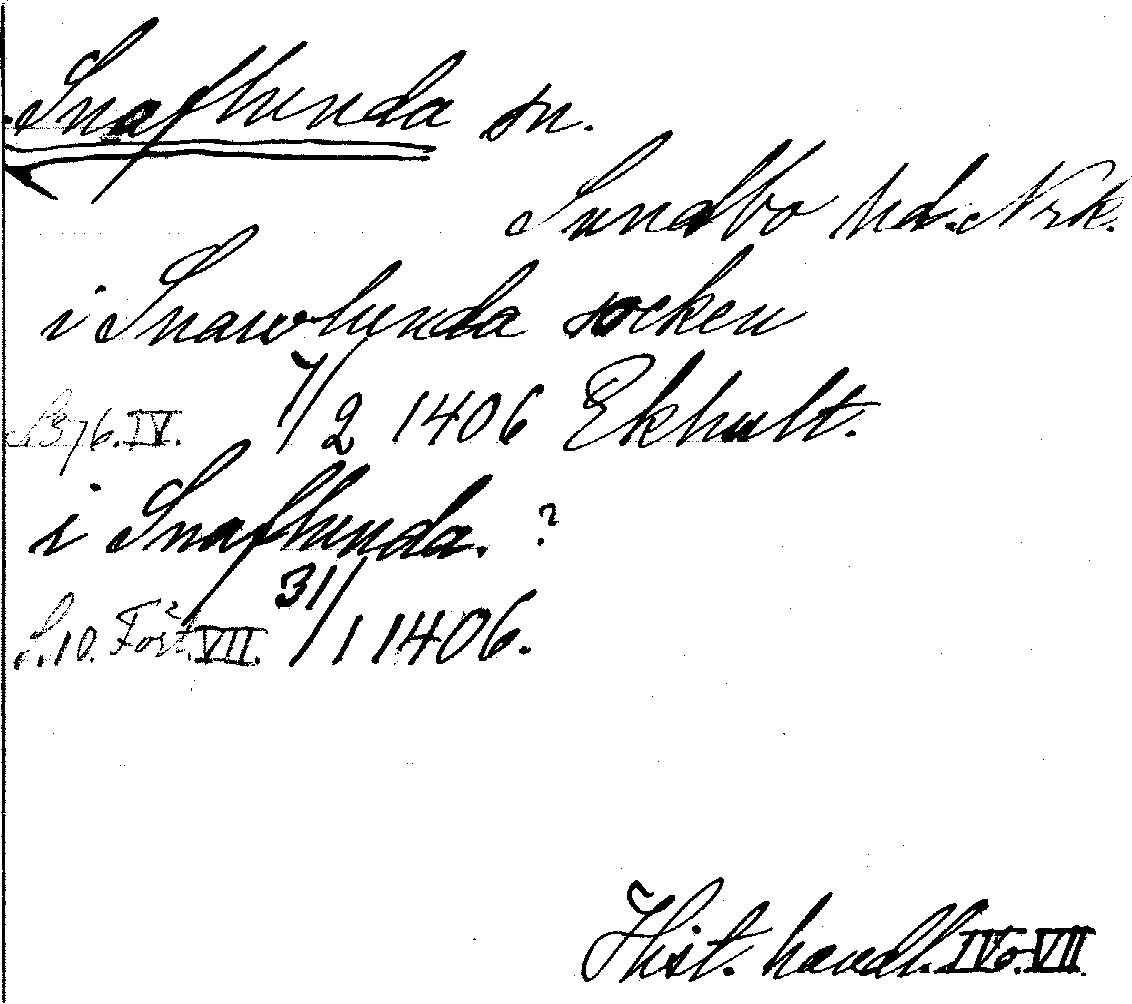 Snaflunda sn.
Sundbo hd. Nrk.
i Snawlunda socken
B 76. IV. 7/2 1406 Ekhult.
i Snaflunda. ?
S. 10. Fört. VII. 31/1 1406.
Hist. handl. IV o. VII